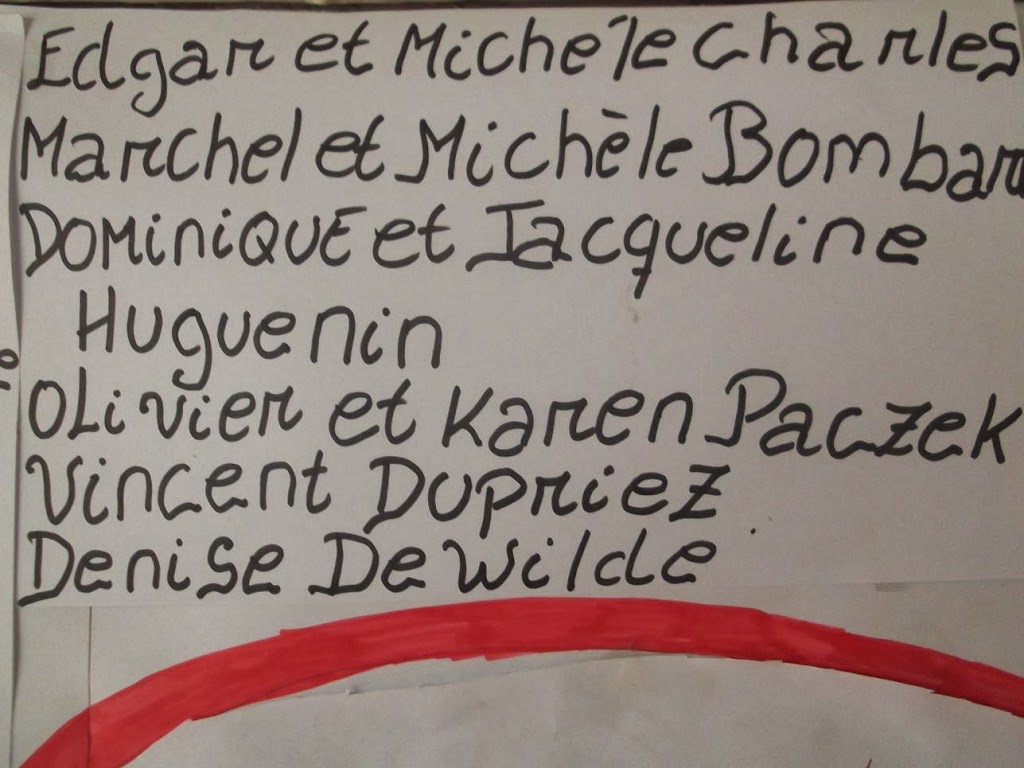 Edgar et Michèle Charles
Marchel et Michèle Bombar
DOMiniQUE et Jacqueline
Huguenin
OLivier et Karen Paczek
Vincent Dupriez
Denise De Wilde